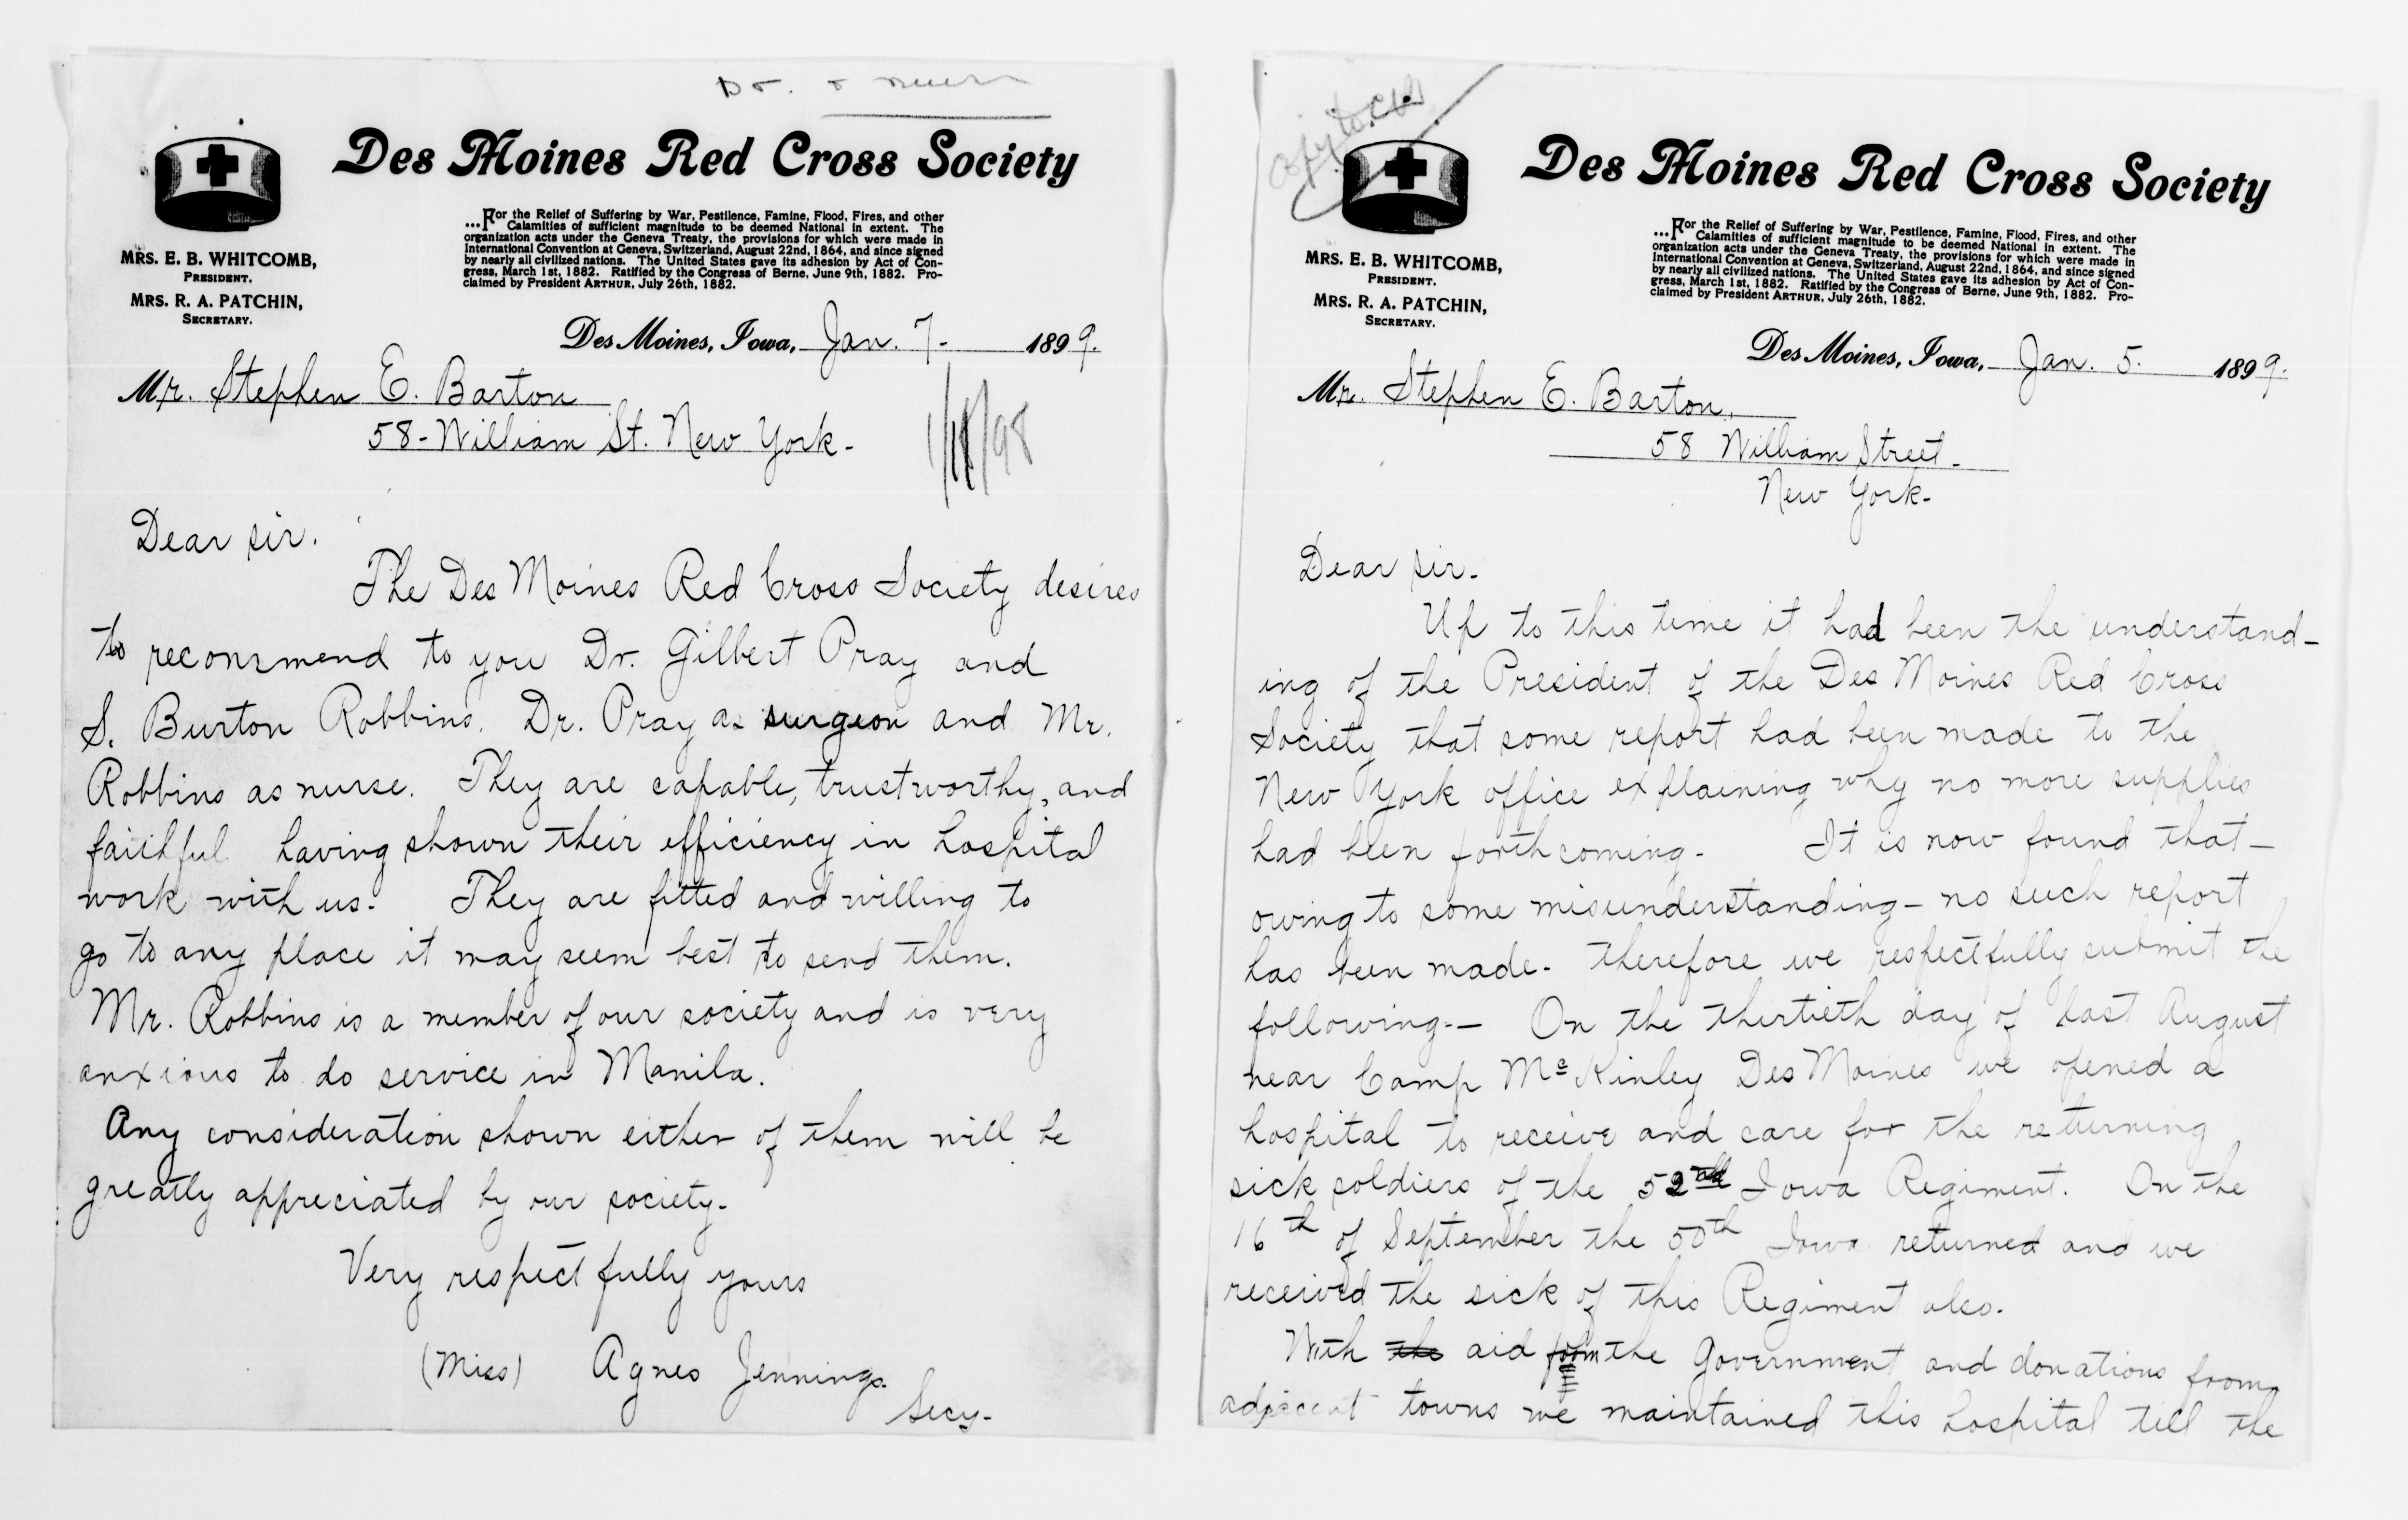 Dr. & nurse
Des Moines Red Cross Society
...For the Relief of Suffering by War, Pestilence, Famine, Flood, Fires, and other
Calamities of sufficient magnitude to be deemed National in extent. The
organization acts under the Geneva Treaty, the provisions for which were made in
International Convention at Geneva, Switzerland, August 22nd, 1864, and since signed
by nearly all civilized nations. The United States gave its adhesion by Act of Con-
gress, March 1st, 1882. Ratified by the Congress of Berne, June 9th, 1882. Pro-
claimed by President ARTHUR, July 26th, 1882.
MRS. E. B. WHITCOMB,
PRESIDENT.
MRS. R. A. PATCHIN,
SECRETARY.
Des Moines, Iowa, Jan. 7- 1899.
Mr. Stephen E. Barton
58-William St. New York-
Dear sir.
The Des Moines Red Cross Society desires
to reconsmend to you Dr. Gilbert Pray and
S. Burton Robbins. Dr. Pray as surgeon and Mr.
Robbins as nurse. They are capable, trustworthy, and
faithful having shown their efficiency in hospital
work with us. They are fitted and willing to
go to any place it may seem best to send them.
Mr. Robbins is a member of our society and is very
anxious to do service in Manila.
Any consideration shown either of them will be
greatly appreciated by our society.
Very respectfully yours
(Miss) Agnes Jennings.
Secy-
Copy to C.B.
Des Moines Red Cross Society
...For the Relief of Suffering by War, Pestilence, Famine, Flood, Fires, and other
Calamities of sufficient magnitude to be deemed National in extent. The
organization acts under the Geneva Treaty, the provisions for which were made in
International Convention at Geneva, Switzerland, August 22nd, 1864, and since signed
by nearly all civilized nations. The United States gave its adhesion by Act of Con-
gress, March 1st, 1882. Ratified by the Congress of Berne, June 9th, 1882. Pro-
claimed by President ARTHUR, July 26th, 1882.
MRS. E. B. WHITCOMB,
PRESIDENT.
MRS. R. A. PATCHIN,
SECRETARY.
Des Moines, Iowa, Jan. 5. 1899.
Mr. Stephen E. Barton,
58 William Street-
New York-
Dear sir-
Up to this time it had been the understand-
ing of the President of the Des Moines Red Cross
Society that some report had been made to the
New York office explaining why no more supplies
had been forthcoming- It is now found that-
owing to some misunderstanding- no such report
has been made- therefore we respectfully submit the
following:- On the thirtieth day of last August
near Camp McKinley Des Moines we opened a
hospital to receive and care for the returning
sick soldiers of the 52nd Iowa Regiment. On the
16th of September the 50th Iowa returned and we
received the sick of this Regiment also.
With the aid from the Government and donations from
adjacent towns we maintained this hospital till the